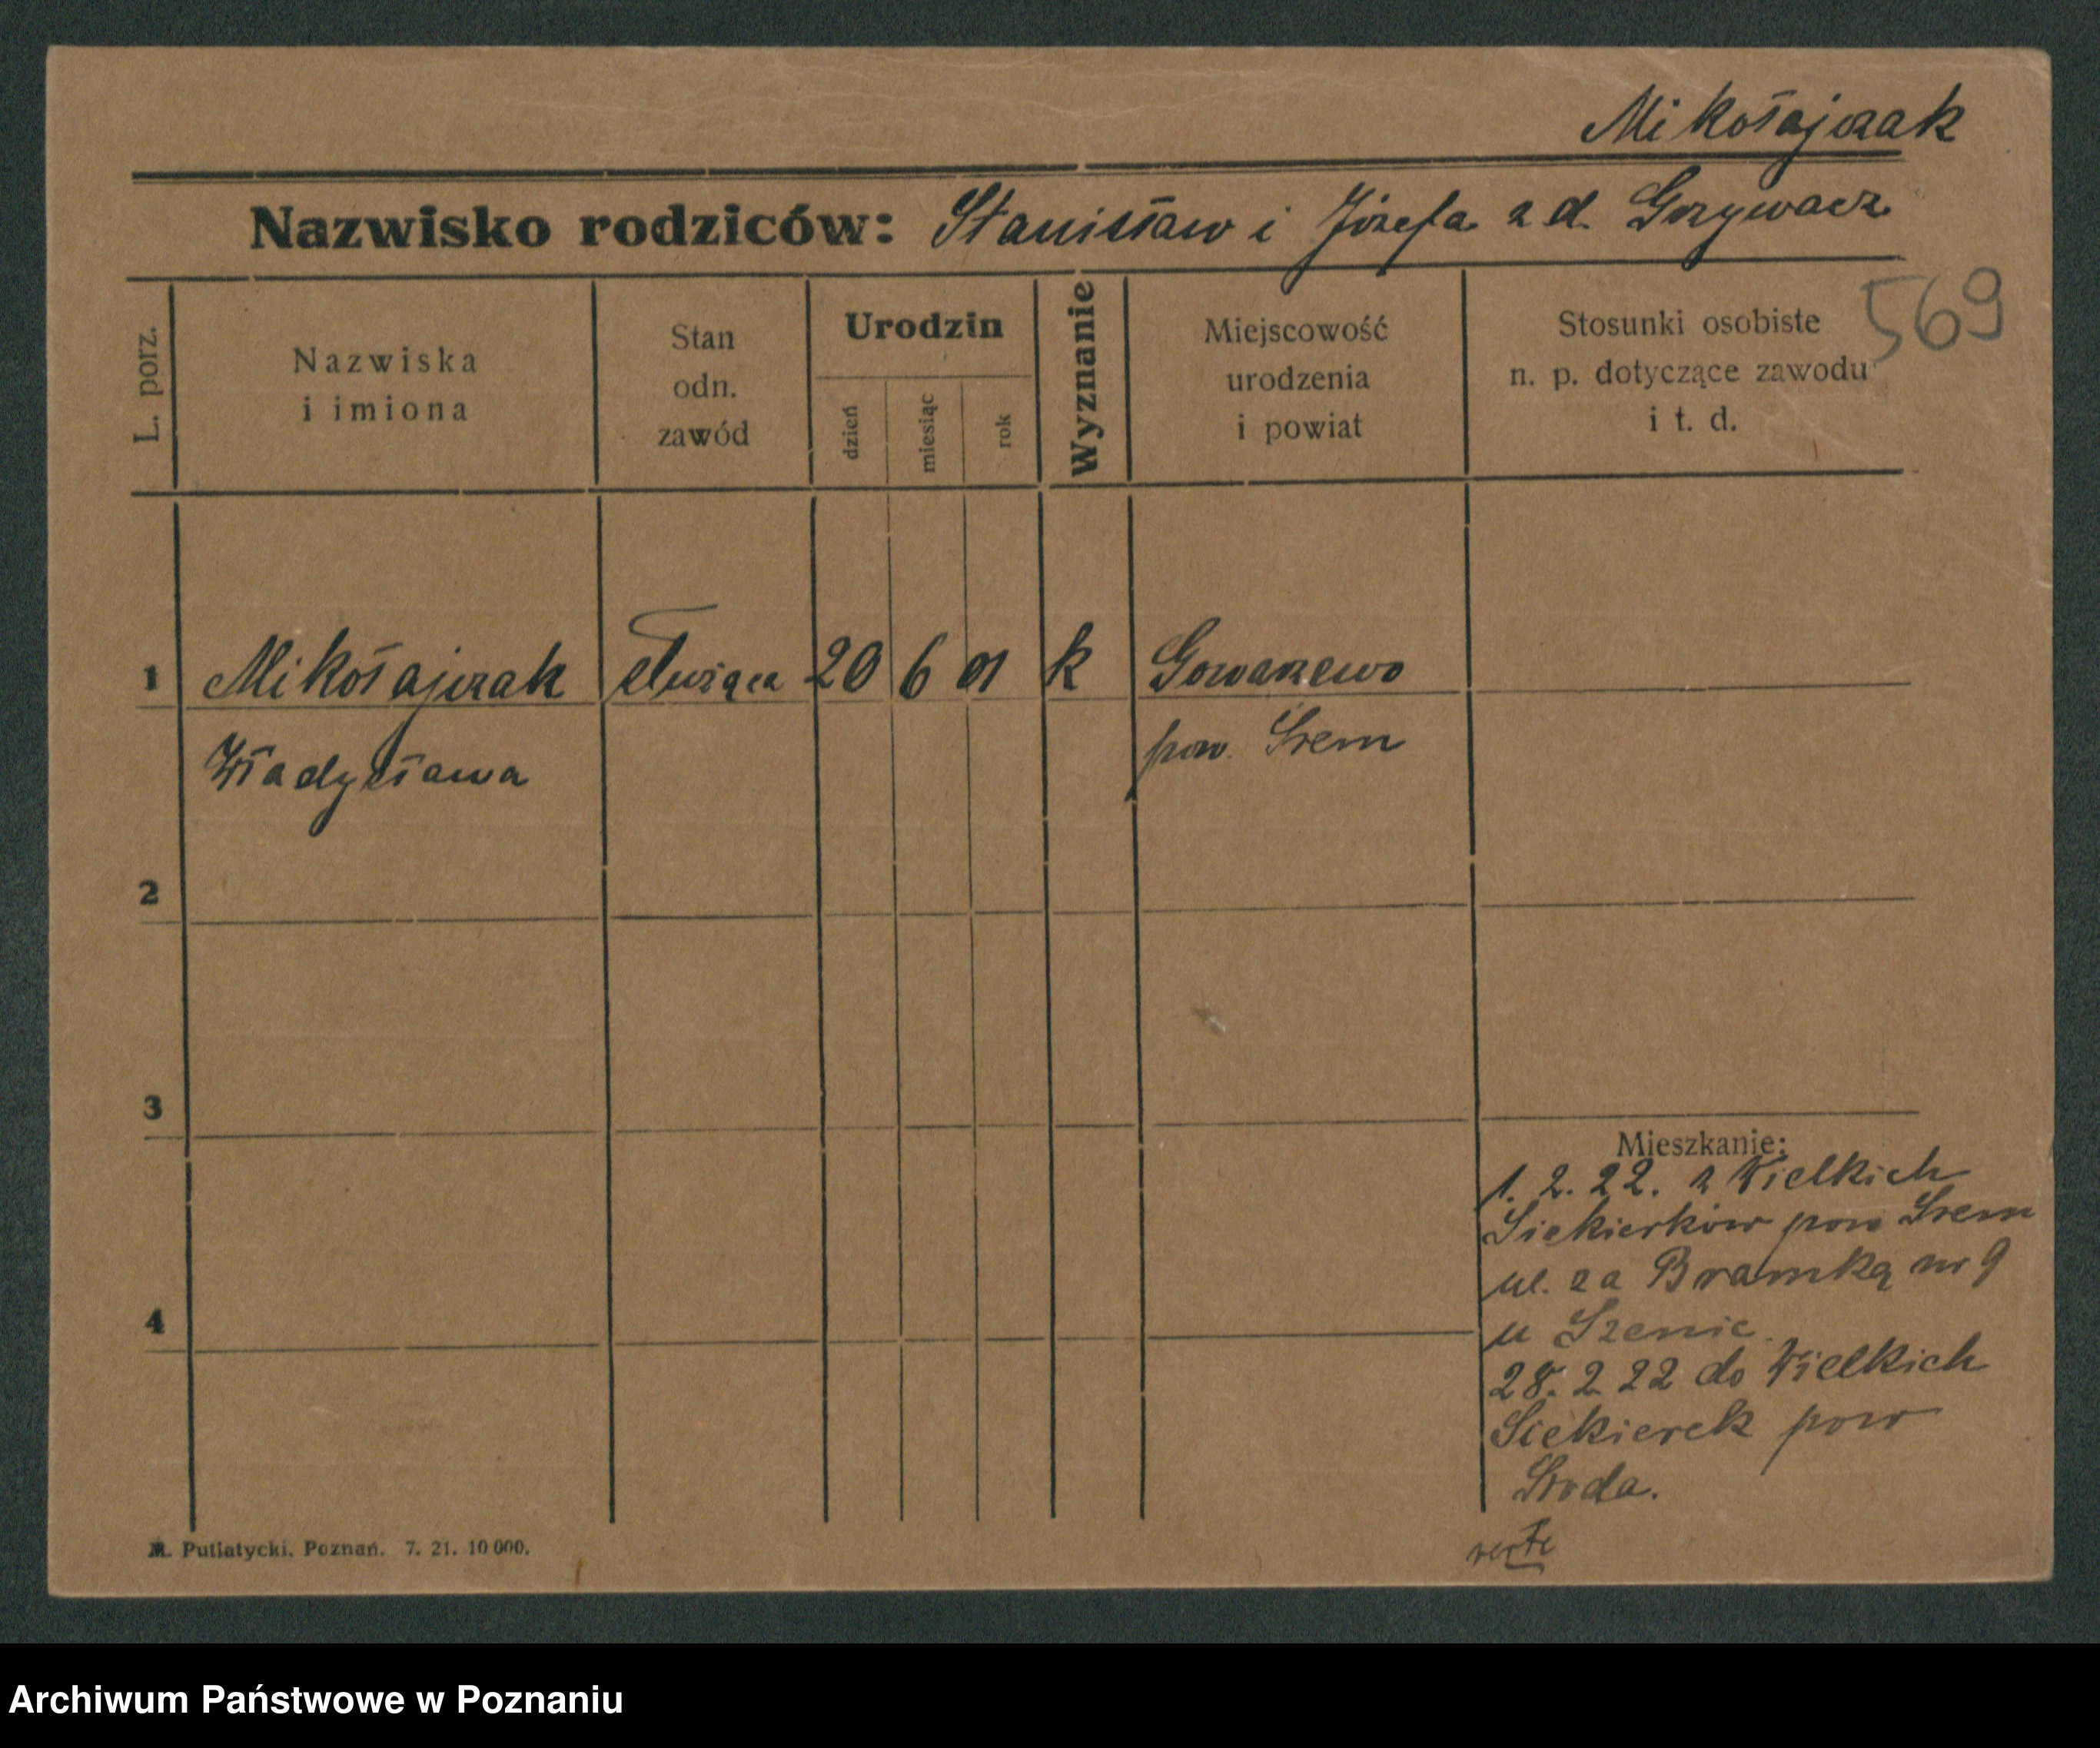 Mikołajczak
Nazwisko rodziców: Stanisław i Józefa z d. Grzywacz
569
L. porz.
Nazwiska
i imiona
Stan
odn.
zawód
Urodzin
dzień
miesiąc
rok
Wyznanie
Miejscowość
urodzenia
i powiat
Stosunki osobiste
n. p. dotyczące zawodu
i t. d.
1 Mikołajczak służąca 20 6 01 k Gowarzewo
Władysława pow. Śrem
2
3
4
Mieszkanie:
1. 2. 22. z Wielkich
Siekierków pow Śrem
ul. za Bramką nr 9
u
28. 2 22 do Wielkich
Siekierek pow
Środa.
verte
M. Putiatycki, Poznań. 7. 21. 10 000.
Archiwum Państwowe w Poznaniu